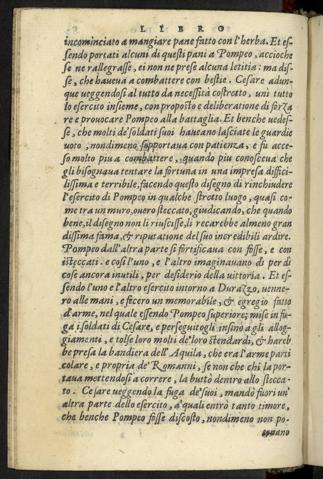 LIBRO
incominciato a mangiare pane fatto con l'herba. Et es-
sendo portati alcuni di questi pani a Pompeo, accioche
se ne rallegrasse, ei non ne prese alcuna letitia: ma dis-
se, che haveva a combattere con bestie. Cesare adun-
que veggendosi al tutto da necessità costretto, uni tutto
lo esercito insieme, con proposto e deliberatione di sforza
re e provocare Pompeo alla battaglia. Et benche vedes-
se, che molti de' soldati suoi haveano lasciate le guardie
voto, nondimeno supportava con patienza, e fu acce-
so molto piu a combattere, quando piu conosceva che
gli bisognava tentare la fortuna in una impresa difficil-
lissima e terribile, facendo questo disegno di rinchiudere
l'esercito di Pompeo in qualche stretto luogo, quasi co-
me tra un muro, overo steccato, giudicando, che quando
bene, il disegno non li riuscisse, li recarebbe almeno gran
dissima fama, & riputatione del suo incredibili ardire.
Pompeo dall'altra parte si fortificava con fosse, e con
isteccati. e cosi l'uno, e l'altro imaginavano di per di
cose ancora inutili, per desiderio della vittoria. Et es-
sendo l'uno e l'altro esercito intorno a Durazo, venne-
ro alle mani, e fecero un memorabile, & egregio fatto
d'arme, nel quale essendo Pompeo superiore; mise in fu-
ga i soldati di Cesare, e perseguitogli insino a gli allog-
giamenti, e tolse loro molti de' loro stendardi, & hareb
be presa la bandiera dell'Aquila, che era l'arme parti
colare, e propria de' Romanni, se non che chi la por-
tava mettendosi a correre, la buttò dentro allo stecca-
to. Cesare veggendo la fuga de' suoi, mandò fuori un'
altra parte dello esercito, a' quali entrò tanto timore,
che benche Pompeo fosse discosto, nondimeno non po-